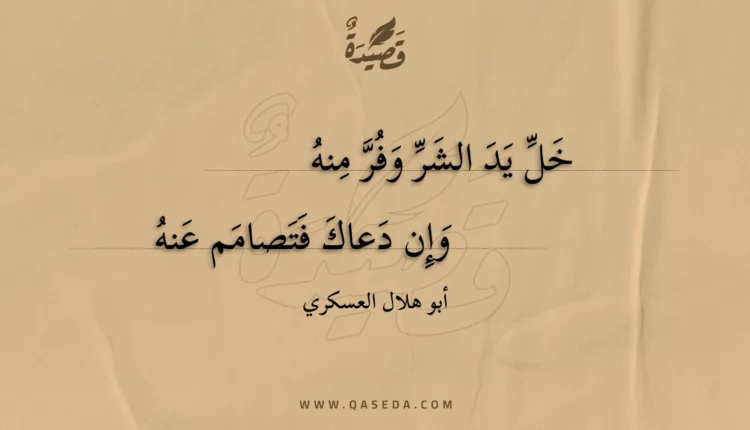 قَصِيْدَةٌ
خَلِّ يَدَ الشَرِّ وَفُرَّ مِنهُ
وَإِن دَعاكَ فَتَصامَم عَنهُ
أبو هلال العسكري
WWW.QASEDA.COM